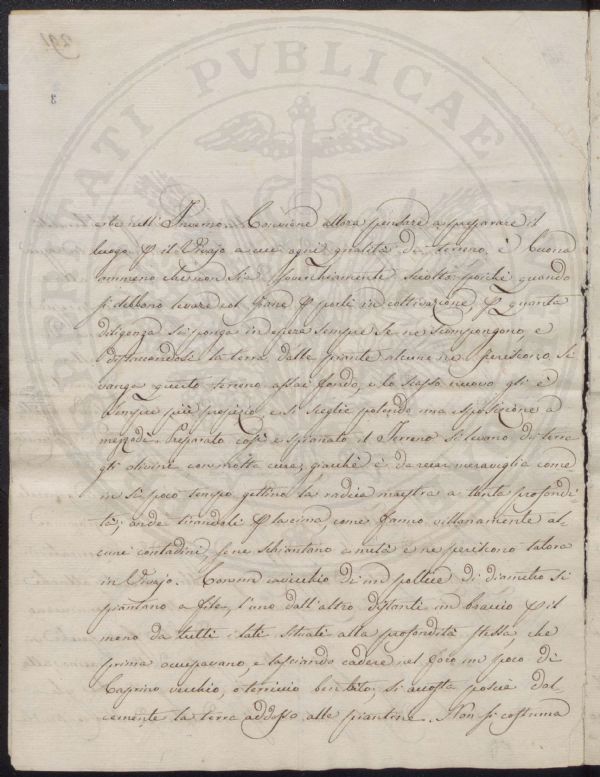 291
3
PROSPERITATI PVBLICAE
nell' Inverno. Conviene allora pensare a preparare il
luogo p il Vivajo a cui ogni qualità di terreno, è buona
ammeno che non sia soverchiamente sciolta poichè quando
si debbano levare col pane p porli in coltivazione, p quanta
diligenza si ponga in opera sempre se ne scompongono e
distaccandosi la terra dalle piante alcune ne periscono. Si
vanga questo terreno assai fondo, e lo scasso nuovo gli è
sempre più propizio e si sceglie potendo una esposizione a
mezzodì. Preparato così e spianato il Terreno si levano di terra
gli olivini con molta cura, giacchè è da recar meraviglia come
in sì poco tempo gettino la radica maestra a tanta profondi-
tà; onde tirandoli p la cima come fanno villanamente al-
cuni contadini, se ne schiantano a metà e ne periscono talora
in Vivajo. Con un cavicchio di un pollice di diametro si
piantano a file, l'uno dall'altro distanti un braccio p il
meno da tutti i lati situati alla profondità stessa, che
prima occupavano, e lasciando cadere nel foro un poco di
Caprino vecchio, o terriccio ben trito, si accosta poscia dol-
cemente la terra addosso alle piantine. Non si costuma